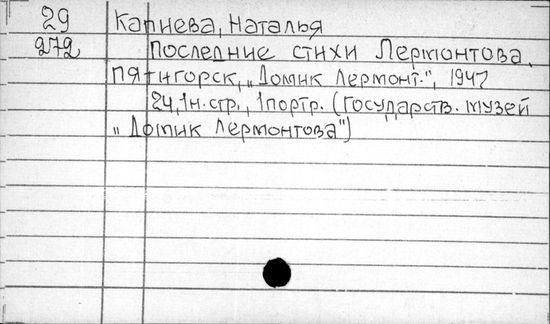 29 Капиева, Наталья
272 Последние стихи Лермонтова.
Пятигорск, „Домик Лермонт.", 1947
24, 1н. стр., 1портр. (Государств. музей
„Домик Лермонтова")